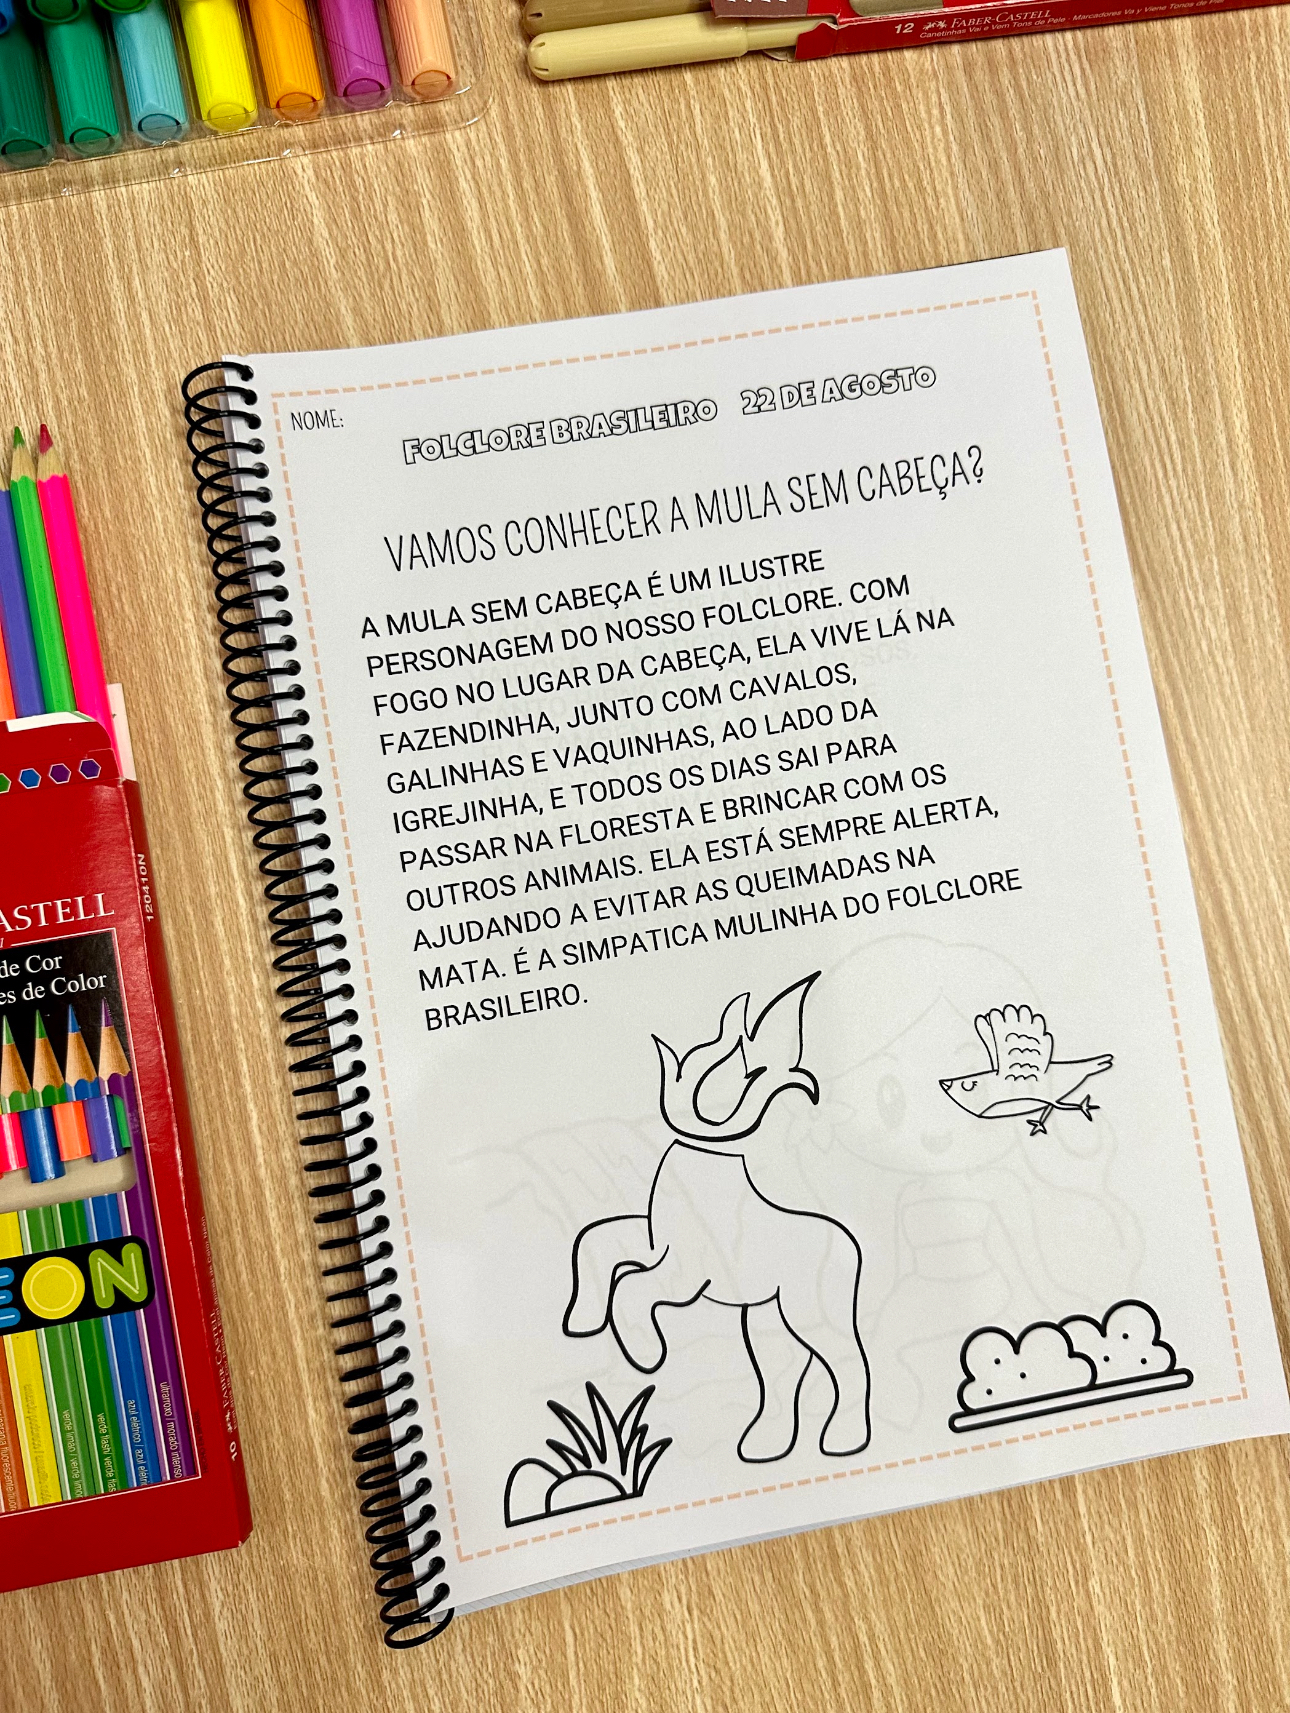 12 FABER-CASTELL
Canetinhas Vai e Vem Tons de Pele · Marcadores Va y Viene Tonos de Piel
NOME:
FOLCLORE BRASILEIRO 22 DE AGOSTO
VAMOS CONHECER A MULA SEM CABEÇA?
A MULA SEM CABEÇA É UM ILUSTRE
PERSONAGEM DO NOSSO FOLCLORE. COM
FOGO NO LUGAR DA CABEÇA, ELA VIVE LÁ NA
FAZENDINHA, JUNTO COM CAVALOS,
GALINHAS E VAQUINHAS, AO LADO DA
IGREJINHA, E TODOS OS DIAS SAI PARA
PASSAR NA FLORESTA E BRINCAR COM OS
OUTROS ANIMAIS. ELA ESTÁ SEMPRE ALERTA,
AJUDANDO A EVITAR AS QUEIMADAS NA
MATA. É A SIMPATICA MULINHA DO FOLCLORE
BRASILEIRO.
120410N
ASTELL
de Cor
es de Color
EON
10 FABER-CASTELL
verde limón
azul elétrico / azul
ultrarroxo / morado intenso